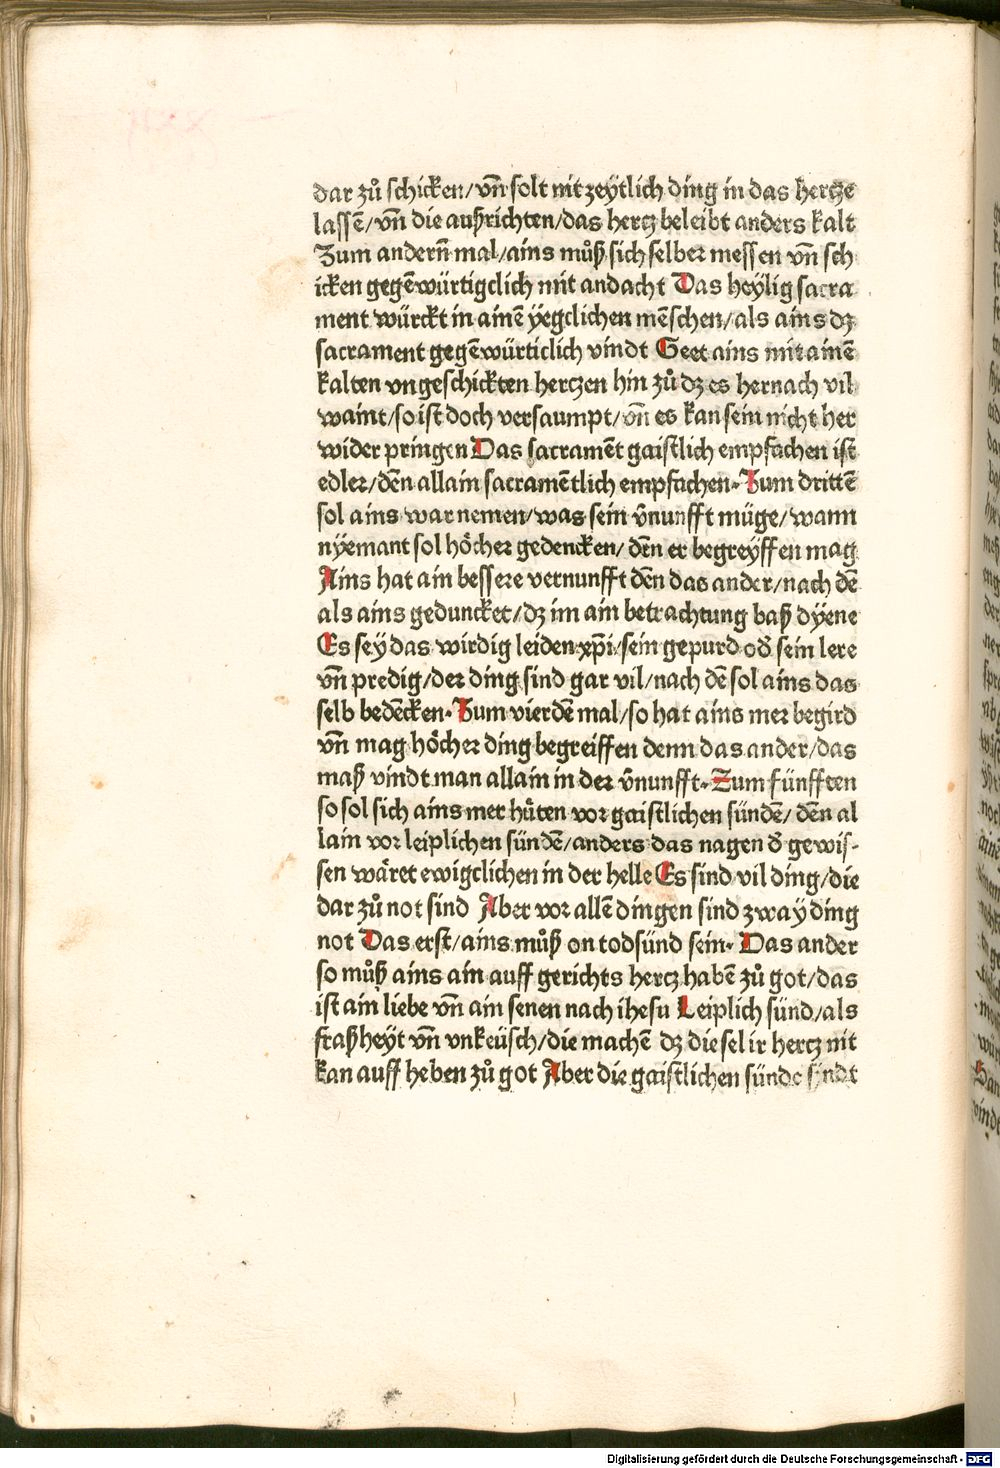 dar zů schicken/vñ solt nit zeytlich ding in das hertze
lassē/vñ die außrichten/das hertz beleibt anders kalt
Zum andern̄ mal/ains můß sich selber messen vñ sch
icken gegēwürtigclich mit andacht Das heylig sacra
ment würckt in ainē yegclichen mēschen/als ains dz
sacrament gegēwürticlich vindt Geet ains mit ainē
kalten vngeschickten hertzen hin zů dz es hernach vil
waint/so ist doch versaumpt/vñ es kan sein nicht her
wider pringen Das sacramēt gaistlich empfachen ist
edler/dēn allain sacramētlich empfachen. Zum drittē
sol ains war nemen/was sein v̄nunfft müge/wann
nyemant sol höcher gedencken/dēn er begreyffen mag
Ains hat ain bessere vernunfft dēn das ander/nach dē
als ains geduncket/dz im ain betrachtung baß dyene
Es sey das wirdig leiden xp̄i/sein gepurd od̄ sein lere
vñ predig/der ding sind gar vil/nach dē sol ains das
selb bedēcken. Zum vierdē mal/so hat ains mer begird
vñ mag höcher ding begreiffen denn das ander/das
maß vindt man allain in der v̄nunfft. Zum fünfften
so sol sich ains mer hüten vor gaistlichen sündē/dēn al
lain vor leiplichen sündē/anders das nagen d̄ gewis-
sen wäret ewigclichen in der helle Es sind vil ding/die
dar zů not sind Aber vor allē dingen sind zway ding
not Das erst/ains můß on todsünd sein. Das ander
so můß ains ain auff gerichts hertz habē zů got/das
ist ain liebe vñ ain senen nach ihesu Leiplich sünd/als
fraßheyt vñ vnkeüsch/die machē dz die sel ir hertz nit
kan auff heben zů got Aber die gaistlichen sünde sindt
Digitalisierung gefördert durch die Deutsche Forschungsgemeinschaft - DFG